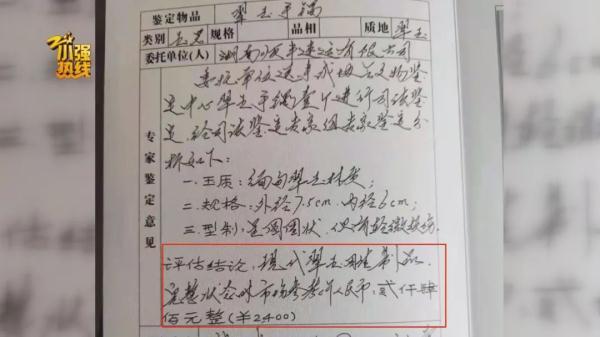 小强热线
鉴定物品 翠玉手镯
类别 玉器 规格 品相 质地 翠玉
委托单位(人) 湖南 建设有限公司
专家鉴定意见
委托单位送来我
定中心翠玉手镯壹个进行司法鉴
定,经司法鉴定专家组专家鉴定分
析如下:
一.玉质:缅甸翠玉材质;
二.规格:外径7.5cm.内径6cm;
三.型制:呈圆圈状.
评估结论:现代翠玉 制品.
完整状态的市场参考价人民币:贰仟肆
佰元整(￥2,400)